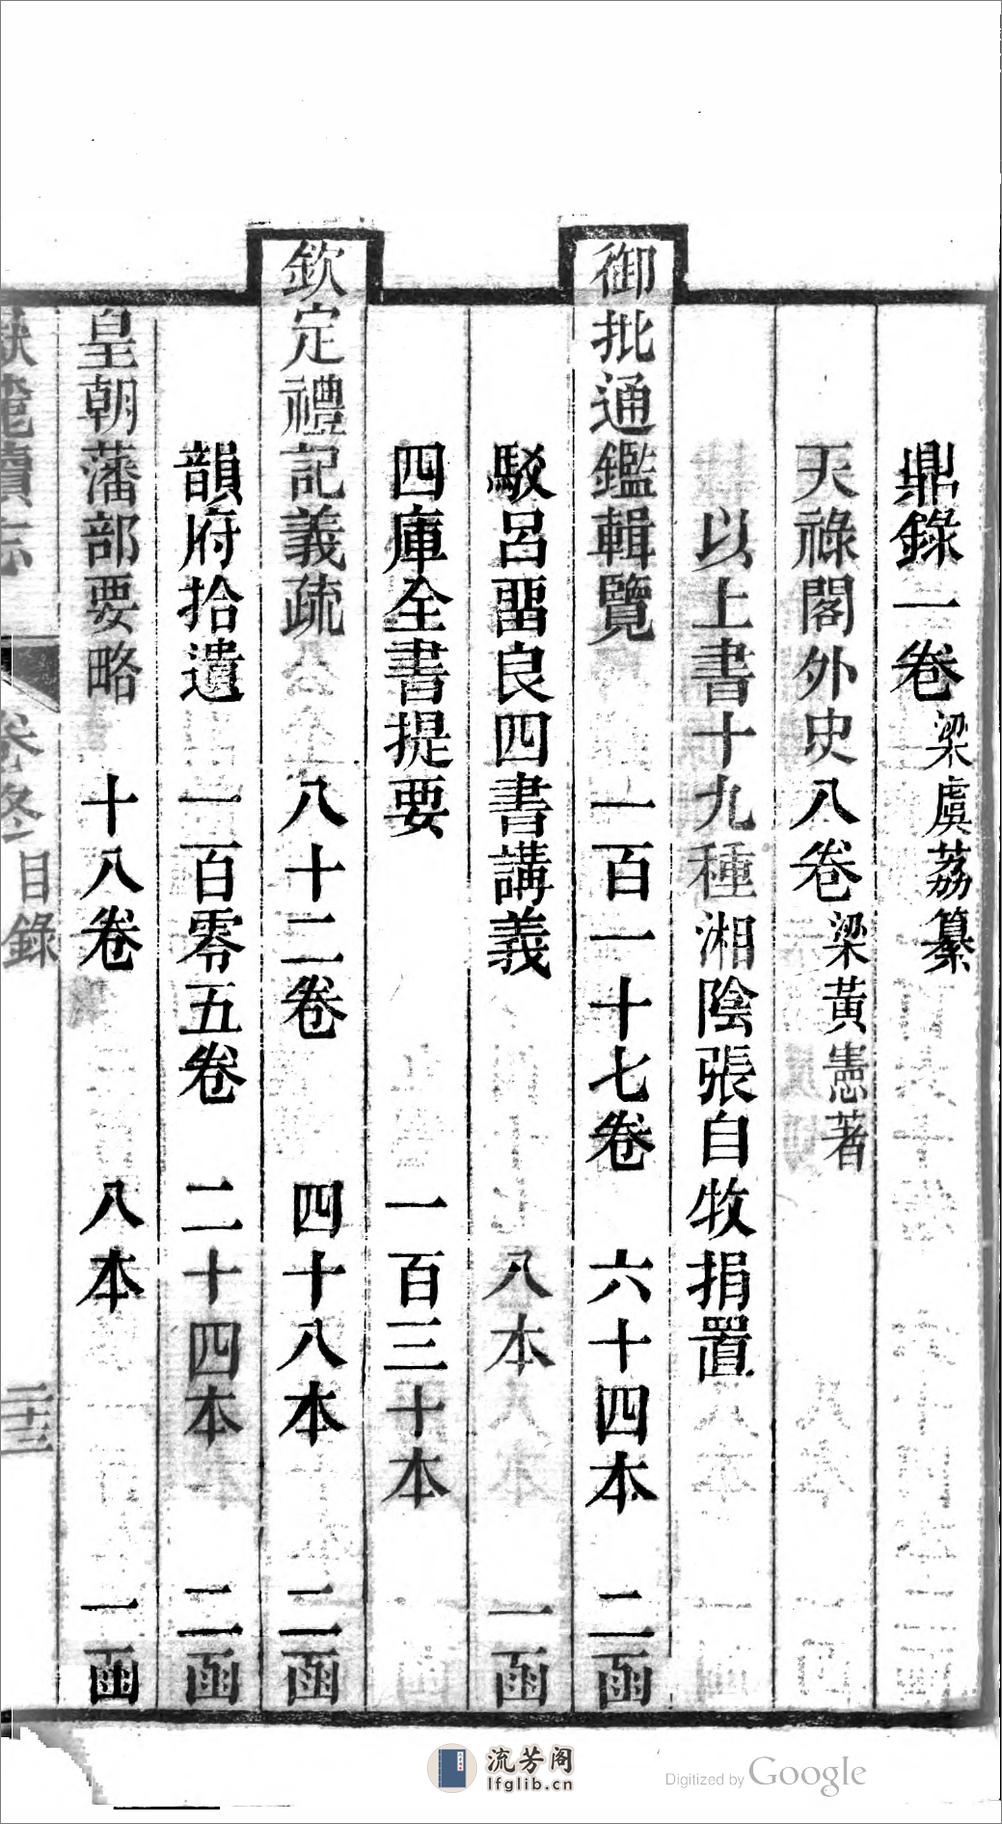 鼎錄一卷梁虞荔纂
天祿閣外史八卷梁黃憲著
以上書十九種湘陰張自牧捐置
御批通鑑輯覽 一百一十七卷 六十四本 二函
駁呂畱良四書講義 八本 一函
四庫全書提要 一百三十本
欽定禮記義疏 八十二卷 四十八本 二函
韻府拾遺 一百零五卷 二十四本 二函
皇朝藩部要略 十八卷 八本 一函
卷終目錄 二十三
流芳阁
lfglib.cn
Digitized by Google